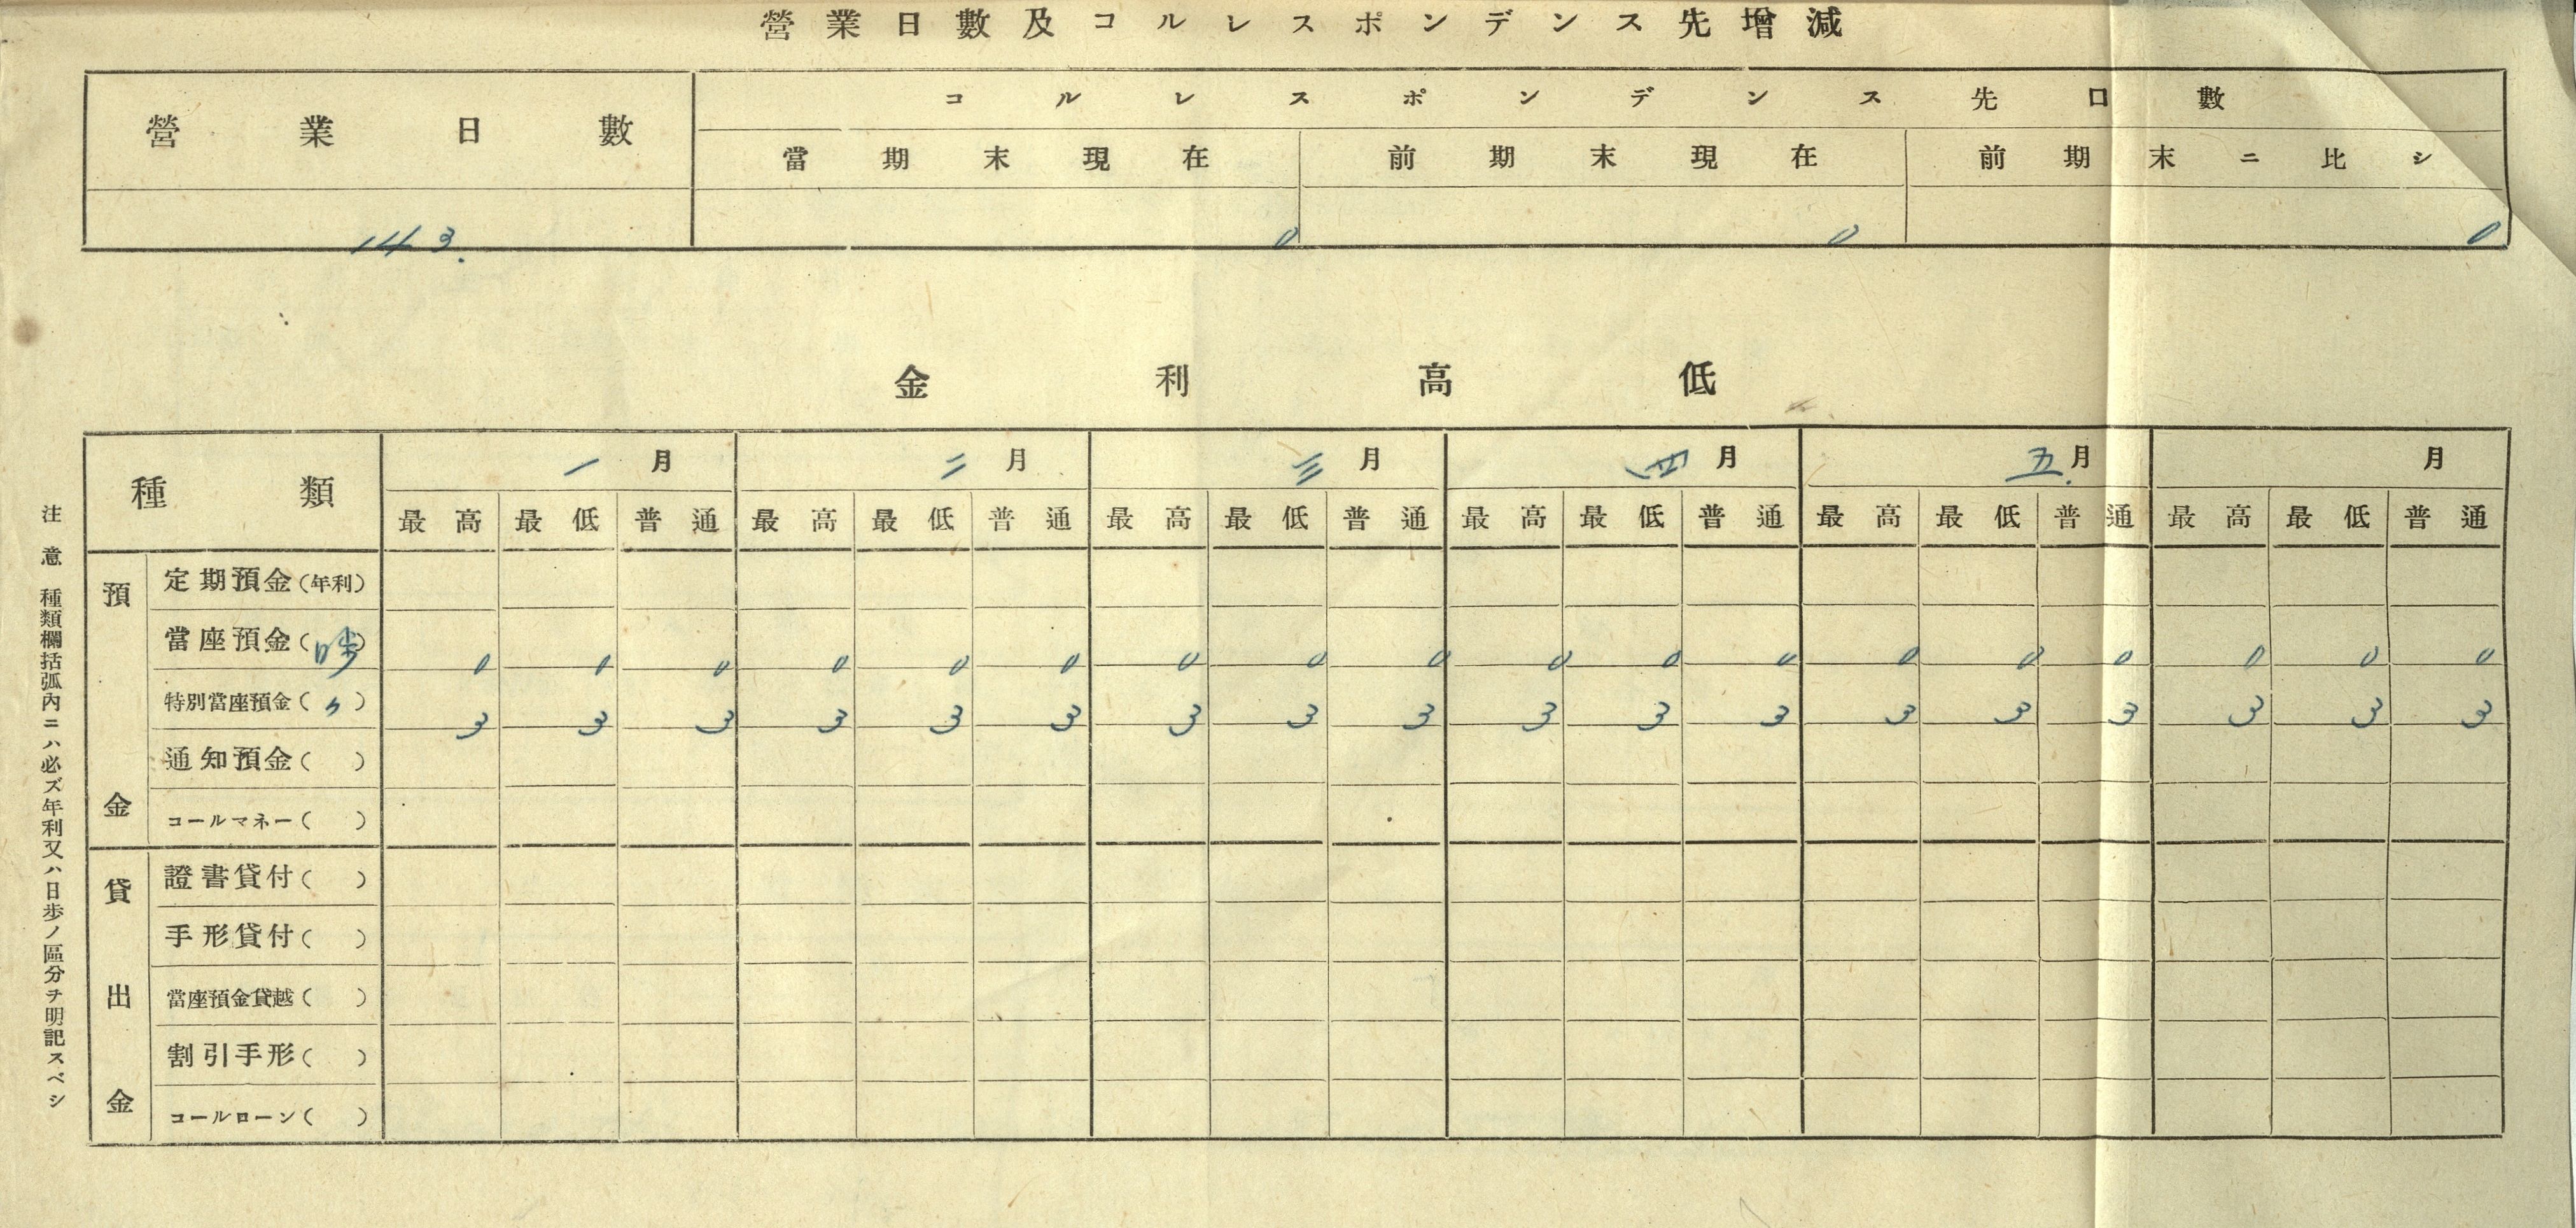 營業日數及コルレスポンデンス先增減
營業日數 コルレスポンデンス先口數
當期末現在 前期末現在 前期末ニ比シ
143. 0 0 0
金利高低
種類 一月 二月 三月 四月 五月 月
最高 最低 普通 最高 最低 普通 最高 最低 普通 最高 最低 普通 最高 最低 普通 最高 最低 普通
預金
定期預金(年利)
當座預金(日歩) 0 0 0 0 0 0 0 0 0 0 0 0 0 0 0 0 0 0
特別當座預金(〃) 3 3 3 3 3 3 3 3 3 3 3 3 3 3 3 3 3 3
通知預金( )
コールマネー( )
貸出金
證書貸付( )
手形貸付( )
當座預金貸越( )
割引手形( )
コールローン( )
注意 種類欄括弧內ニハ必ズ年利又ハ日歩ノ區分ヲ明記スベシ